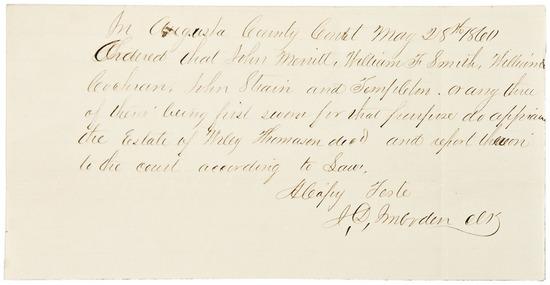 In Augusta County Court May 28th 1860
Ordered that John Merritt, William F. Smith, William
Cochran, John Strain and Templeton or any three
of them being first sworn for that purpose do appraise
the Estate of Wiley Thomason decd and report thereon
to the court according to Law.
A Copy Teste
J. D. Imboden clk